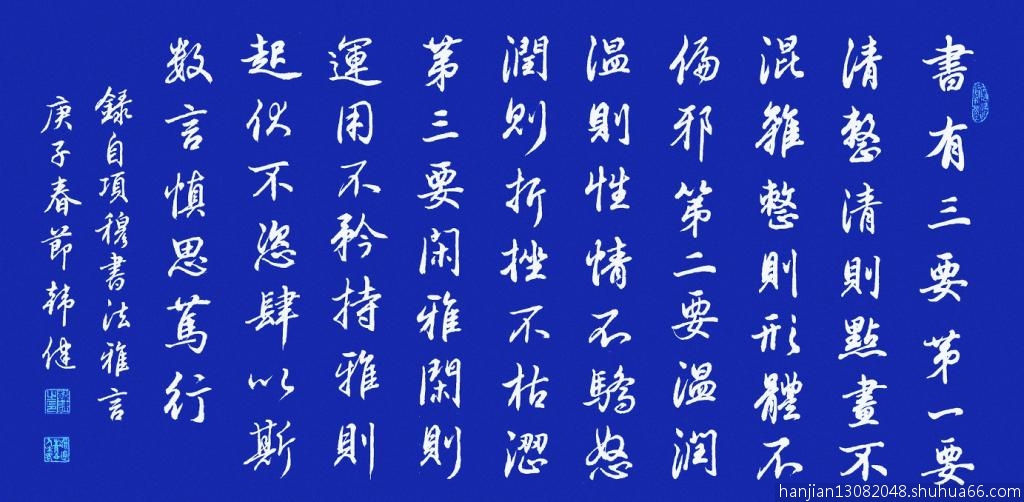 書有三要第一要
清整清則點畫不
混雜整則形體不
偏邪第二要溫潤
溫則性情不驕怒
潤則折挫不枯澀
第三要閑雅閑則
運用不矜持雅則
起伏不恣肆以斯
数言慎思篤行
録自項穆書法雅言
庚子春節韩健
hanjian13082048.shuhua66.com